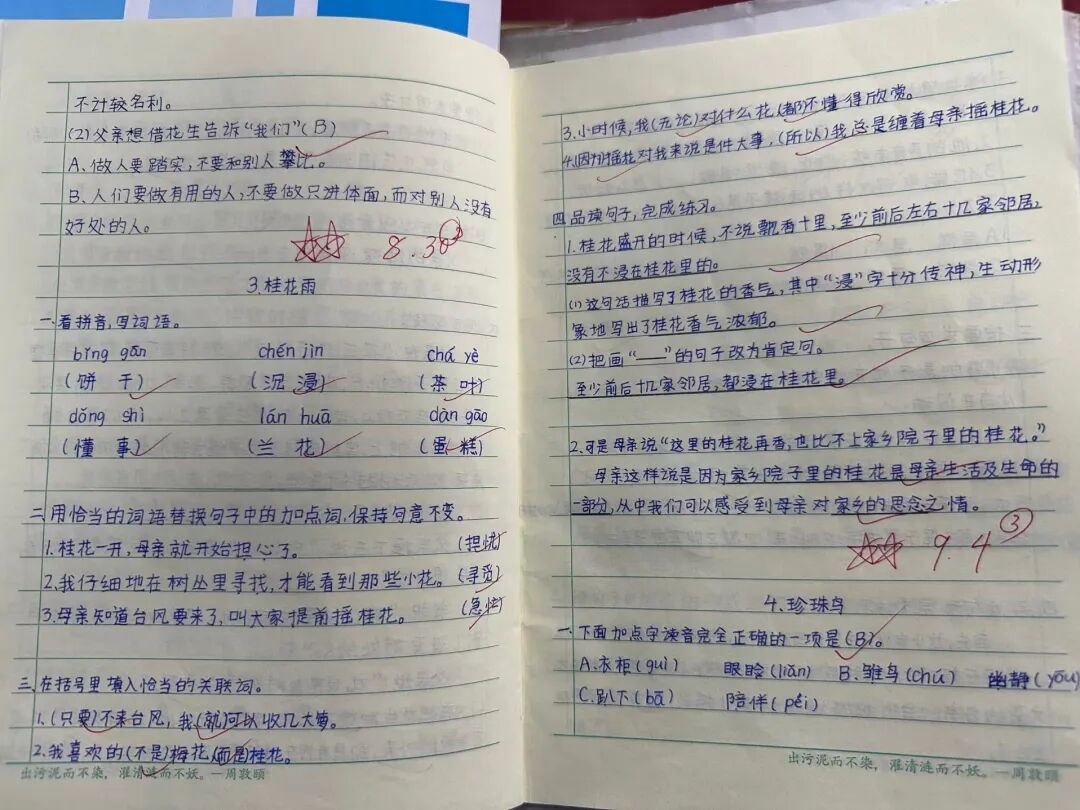 不计较名利。
(2)父亲想借花生告诉“我们”(B)
A、做人要踏实,不要和别人攀比。
B、人们要做有用的人,不要做只讲体面,而对别人没有
好处的人。
8.30
3.桂花雨
一.看拼音,写词语。
bǐng gān chén jìn chá yè
(饼干) (沉浸) (茶叶)
dǒng shì lán huā dàn gāo
(懂事) (兰花) (蛋糕)
二.用恰当的词语替换句子中的加点词,保持句意不变。
1.桂花一开,母亲就开始担心了。 (担忧)
2.我仔细地在树丛里寻找,才能看到那些小花。(寻觅)
3.母亲知道台风要来了,叫大家提前摇桂花。 (急忙)
三.在括号里填入恰当的关联词。
1.(只要)不来台风,我(就)可以收几大箩。
2.我喜欢的(不是)梅花,(而是)桂花。
出污泥而不染,濯清涟而不妖。—周敦颐
3.小时候,我(无论)对什么花,(都)不懂得欣赏。
4.(因为)摇花对我来说是件大事,(所以)我总是缠着母亲摇桂花。
四.品读句子,完成练习。
1.桂花盛开的时候,不说飘香十里,至少前后左右十几家邻居,
没有不浸在桂花里的。
(1)这句话描写了桂花的香气,其中“浸”字十分传神,生动形
象地写出了桂花香气浓郁。
(2)把画“——”的句子改为肯定句。
至少前后十几家邻居,都浸在桂花里。
2.可是母亲说“这里的桂花再香,也比不上家乡院子里的桂花。”
母亲这样说是因为家乡院子里的桂花是母亲生活及生命的
一部分,从中我们可以感受到母亲对家乡的思念之情。
9.4 ③
4.珍珠鸟
一.下面加点字读音完全正确的一项是(B)。
A.衣柜(guì) 眼睑(liǎn) B.雏鸟(chú) 幽静(yōu)
C.趴下(bā) 陪伴(péi)
出污泥而不染,濯清涟而不妖。—周敦颐